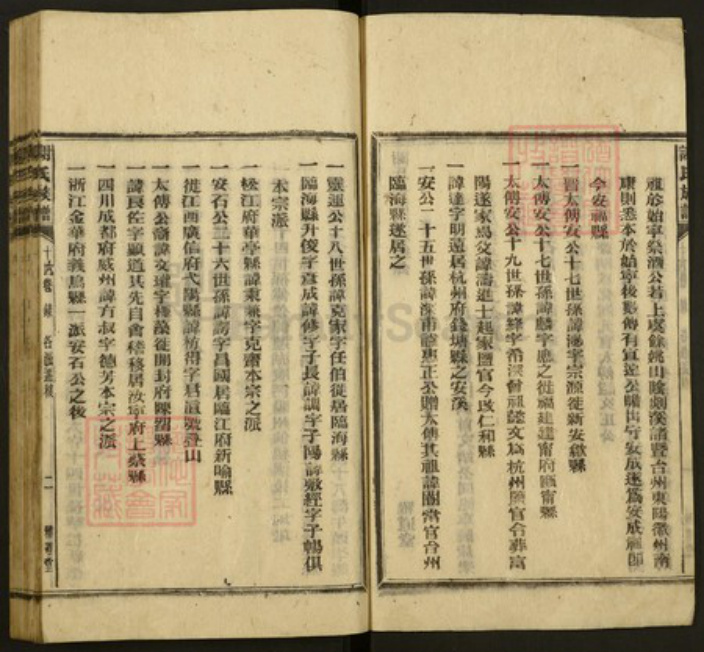 祖於始寧祭酒公若上虞餘姚山陰剡溪諸暨台州東陽徽州南
康則悉本於始寧後數傳有宣遠公晦出守安成遂為安成祖即
今安福縣
一晉太傅安公十七世孫諱泌字宗源徙新安歙縣
一太傅安公十七世孫諱麟字應之徙福建建甯府甌甯縣
一太傅安公十九世孫諱絳字希深曾祖懿文為杭州鹽官令葬富
陽遂家焉父諱濤進士起家鹽官今改仁和縣
一諱逵字明遠居杭州府錢塘縣之安溪
一安公二十五世孫諱深甫諡惠正公贈太傅其祖諱閎當官台州
臨海縣遂居之
一靈運公十八世孫諱克家字任伯徙居臨海縣
一臨海縣升俊字章成諱修字子長諱訓字子陽諱敷經字子暢俱
本宗派
一松江府華亭縣諱東字克齋本宗之派
一安石公三十六世孫諱諤字昌國居臨江府新喻縣
一徙江西廣信府弋陽縣諱枋得字君直號疊山
一太傅公裔諱文瓘字徙開封府陳留縣
一諱良佐字顯道其先自會稽移居汝寧府上蔡縣
一四川成都府威州諱方叔字德方本宗之派
一浙江金華府義烏縣一派安石公之後
謝氏族譜
十六卷
二